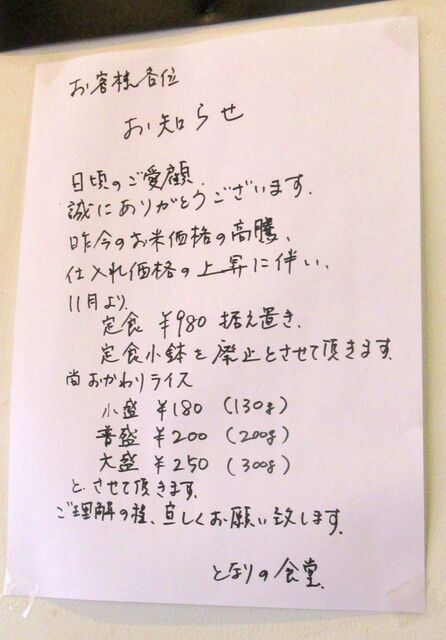 お客様各位
お知らせ
日頃のご愛顧
誠にありがとうございます.
昨今のお米価格の高騰、
仕入れ価格の上昇に伴い、
11月より
定食 ¥980 据え置き.
定食小鉢を廃止とさせて頂きます.
尚おかわりライス
小盛 ¥180 (130g)
普盛 ¥200 (200g)
大盛 ¥250 (300g)
とさせて頂きます.
ご理解の程、宜しくお願い致します.
となりの食堂.